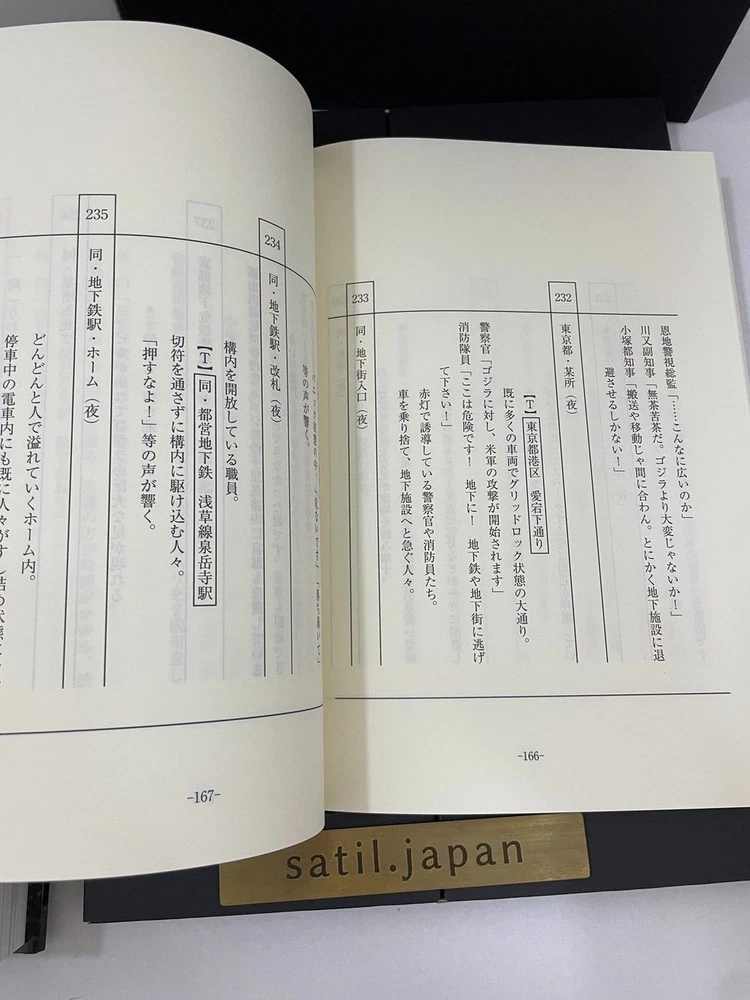 恩地警視総監「……こんなに広いのか」
川又副知事「無茶苦茶だ。ゴジラより大変じゃないか！」
小塚都知事「搬送や移動じゃ間に合わん。とにかく地下施設に退
避させるしかない！」
232
東京都・某所（夜）
【T】東京都港区　愛宕下通り
既に多くの車両でグリッドロック状態の大通り。
警察官「ゴジラに対し、米軍の攻撃が開始されます」
消防隊員「ここは危険です！　地下に！　地下鉄や地下街に逃げ
て下さい！」
赤灯で誘導している警察官や消防員たち。
車を乗り捨て、地下施設へと急ぐ人々。
233
同・地下街入口（夜）
-166-
等の声が響く。
234
同・地下鉄駅・改札（夜）
構内を開放している職員。
【T】同・都営地下鉄　浅草線泉岳寺駅
切符を通さずに構内に駆け込む人々。
「押すなよ！」等の声が響く。
235
同・地下鉄駅・ホーム（夜）
どんどんと人で溢れていくホーム内。
停車中の電車内にも既に人々がすし詰め状態
-167-
satil.japan